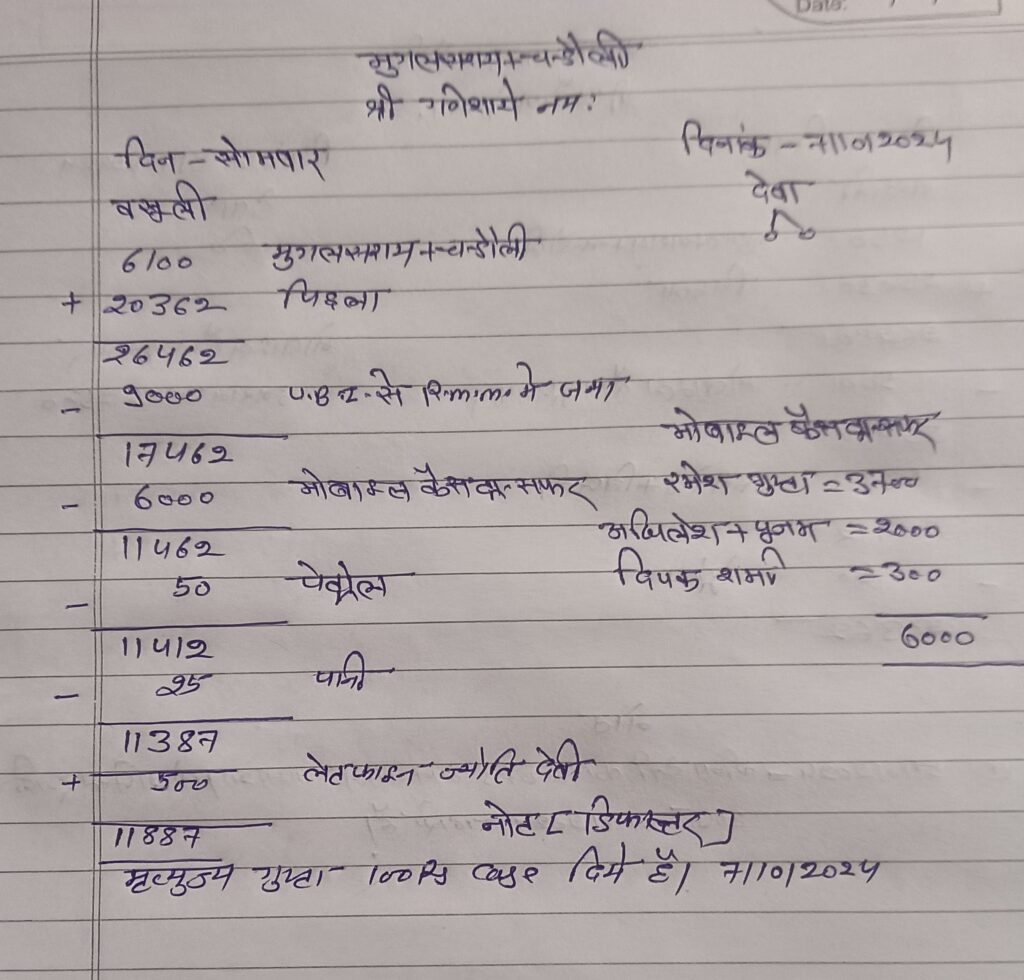 Date:
मुगलसराय+चन्डौली
श्री गणेशाये नमः
दिन - सोमवार
दिनांक - 7/10/2024
वसूली
देवा
6100 मुगलसराय+चन्डौली
+ 20362 पिछला
26462
- 9000 U.B.I. से R.m.m. मे जमा
17462
मोबाइल कैस ट्रान्सफर
- 6000 मोबाइल कैस ट्रान्सफर
रमेश गुप्ता = 3700
11462
अखिलेश + पुनम = 2000
- 50 पेट्रोल
दिपक शर्मा = 300
11412
6000
- 25 पानी
11387
+ 500 लेटफाइन ज्योति देवी
11887
नोट [डिफाल्टर]
मृत्युन्जय गुप्ता 100Rs case दिये है। 7/10/2024